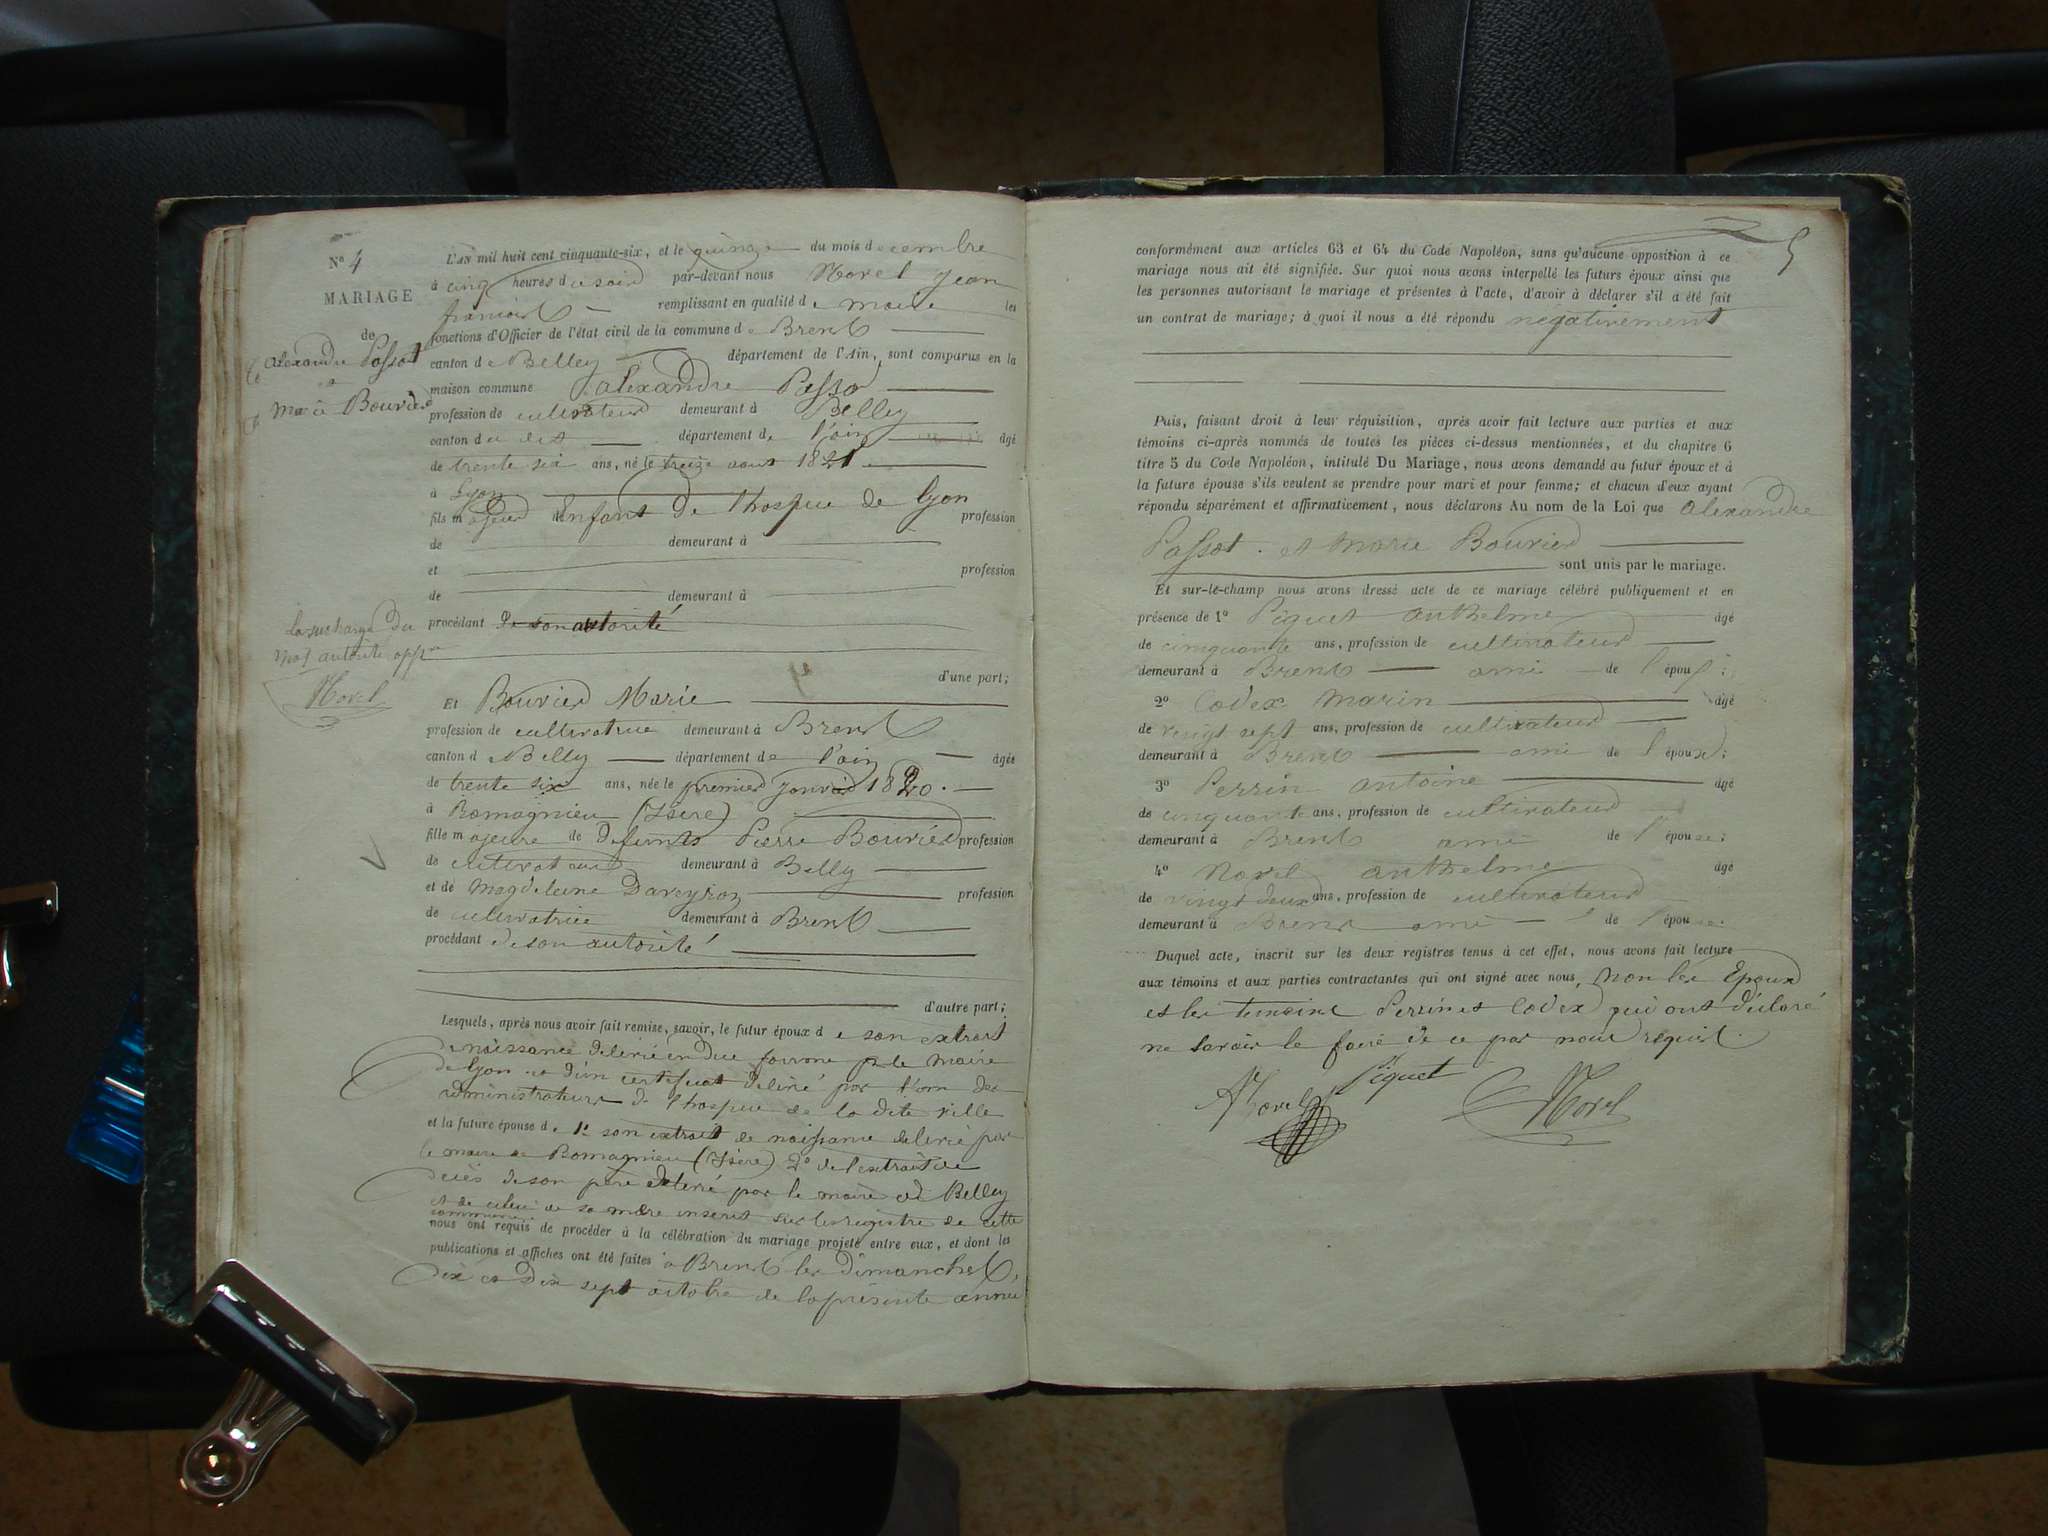 N° 4
MARIAGE
de
Alexandre Passot
et
Marie Bouvier
L'AN mil huit cent cinquante-six, et le quinze du mois decembre
à cinq heures du soir par-devant nous Morel Jean
françois remplissant en qualité de maire les
fonctions d'Officier de l'état civil de la commune de Brens
canton de Belley département de l'Ain, sont comparus en la
maison commune Alexandre Passot
profession de cultivateur demeurant à Belley
canton du dit département de l'ain âgé
de trente six ans, né le treize aout 1821
à Lyon
fils majeur Enfant De l'hospice de Lyon profession
de demeurant à
et profession
de demeurant à
procédant de son autorité
La surcharge du
mot autorité appr
Morel
d'une part;
Et Bouvier Marie
profession de cultivatrice demeurant à Brens
canton de Belley département de l'ain âgée
de trente six ans, née le premier janvier 1820.
à Romagnieu (Isère)
fille majeure de Defunts Pierre Bouvier profession
de cultivateur demeurant à Belley
et de Magdeleine Daveyron profession
de cultivatrice demeurant à Brens
procédant de son autorité
d'autre part;
Lesquels, après nous avoir fait remise, savoir, le futur époux de son extrait
de naissance délivré en due forme par le Maire
de Lyon et d'un certificat délivré par l'un des
administrateurs de l'hospice de la dite ville
et la future épouse de 1° son extrait de naissance délivré par
le maire de Romagnieu (Isère) 2° de l'extrait de
décès de son père délivré par le maire de Belley
et de celui de sa mère inscrit sur les registre de cette
commune
nous ont requis de procéder à la célébration du mariage projeté entre eux, et dont les
publications et affiches ont été faites à Brens les Dimanches,
dix et Dix sept octobre de la présente année
5
conformément aux articles 63 et 64 du Code Napoléon, sans qu'aucune opposition à ce
mariage nous ait été signifiée. Sur quoi nous avons interpellé les futurs époux ainsi que
les personnes autorisant le mariage et présentes à l'acte, d'avoir à déclarer s'il a été fait
un contrat de mariage; à quoi il nous a été répondu négativement
Puis, faisant droit à leur réquisition, après avoir fait lecture aux parties et aux
témoins ci-après nommés de toutes les pièces ci-dessus mentionnées, et du chapitre 6
titre 5 du Code Napoléon, intitulé Du Mariage, nous avons demandé au futur époux et à
la future épouse s'ils veulent se prendre pour mari et pour femme; et chacun d'eux ayant
répondu séparément et affirmativement, nous déclarons Au nom de la Loi que Alexandre
Passot et Marie Bouvier
sont unis par le mariage.
Et sur-le-champ nous avons dressé acte de ce mariage célébré publiquement et en
présence de 1° Piguet Anthelme âgé
de cinquante ans, profession de cultivateur
demeurant à Brens ami de l'époux;
2° Codex Marin âgé
de vingt sept ans, profession de cultivateur
demeurant à Brens ami de l'époux;
3° Perrin Antoine âgé
de cinquante ans, profession de cultivateur
demeurant à Brens ami de l'épouse;
4° Morel Anthelme âgé
de vingt deux ans, profession de cultivateur
demeurant à Brens ami de l'épouse.
Duquel acte, inscrit sur les deux registres tenus à cet effet, nous avons fait lecture
aux témoins et aux parties contractantes qui ont signé avec nous, non les Epoux
et les temoins Perrin et Codex qui ont déclaré
ne savoir le faire de ce par nous requis.
A Morel Piguet Morel